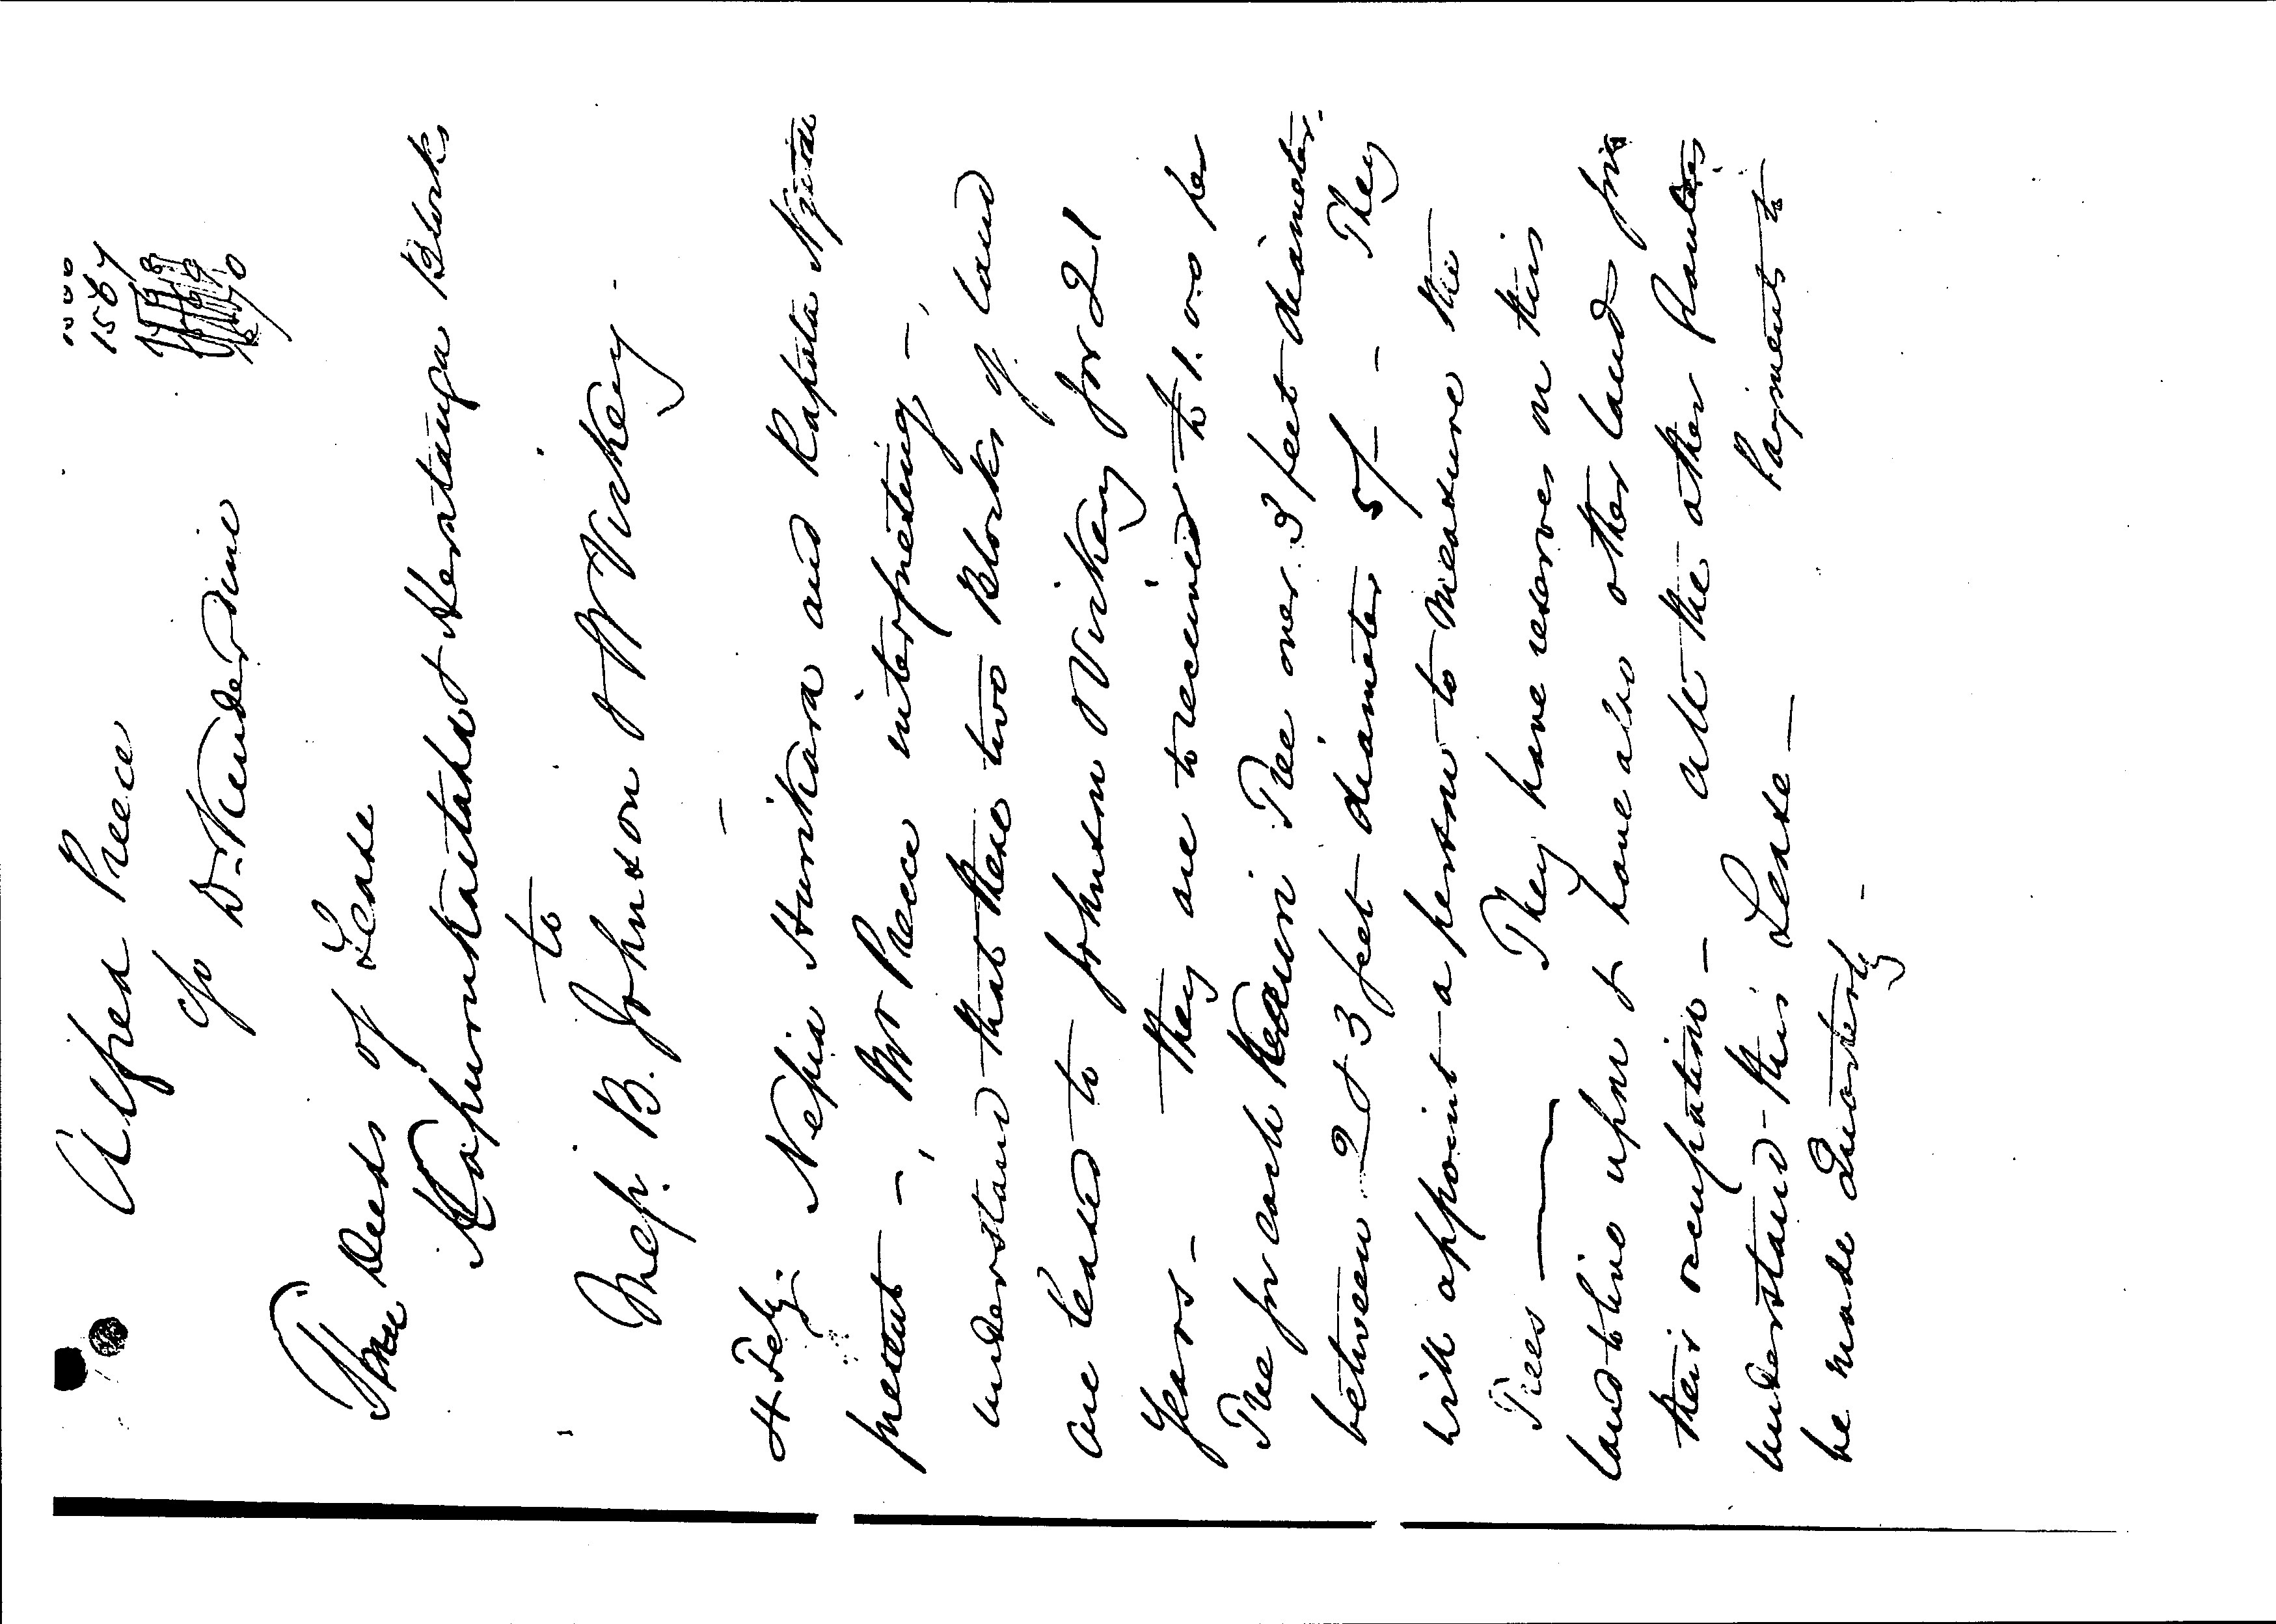 Alfred Preece
c/o Dr. Nieuderdine
1566
1567
1570
Three Deeds of Lease
Kapurukaitaha & Herataunga Blocks
to
Messrs. B. Johnson & W Vickery.
4 Feby. Nepia Hurikara and Rapata Ngatai
present -, Mr Preece interpreting -,
understand that these two Blocks of land
are leased to Johnson & Vickery for 21
years - They are to received to 1.0.0 per
Tree for each Kauri Tree over 3 feet diameter.
between 2 & 3 feet diameter 5/- - They
will appoint a person to measure the
Trees — They have reserves on this
land to live upon & have also other land for
their occupation - All the other parties
understand this Lease - Payments to
be made Quarterly -